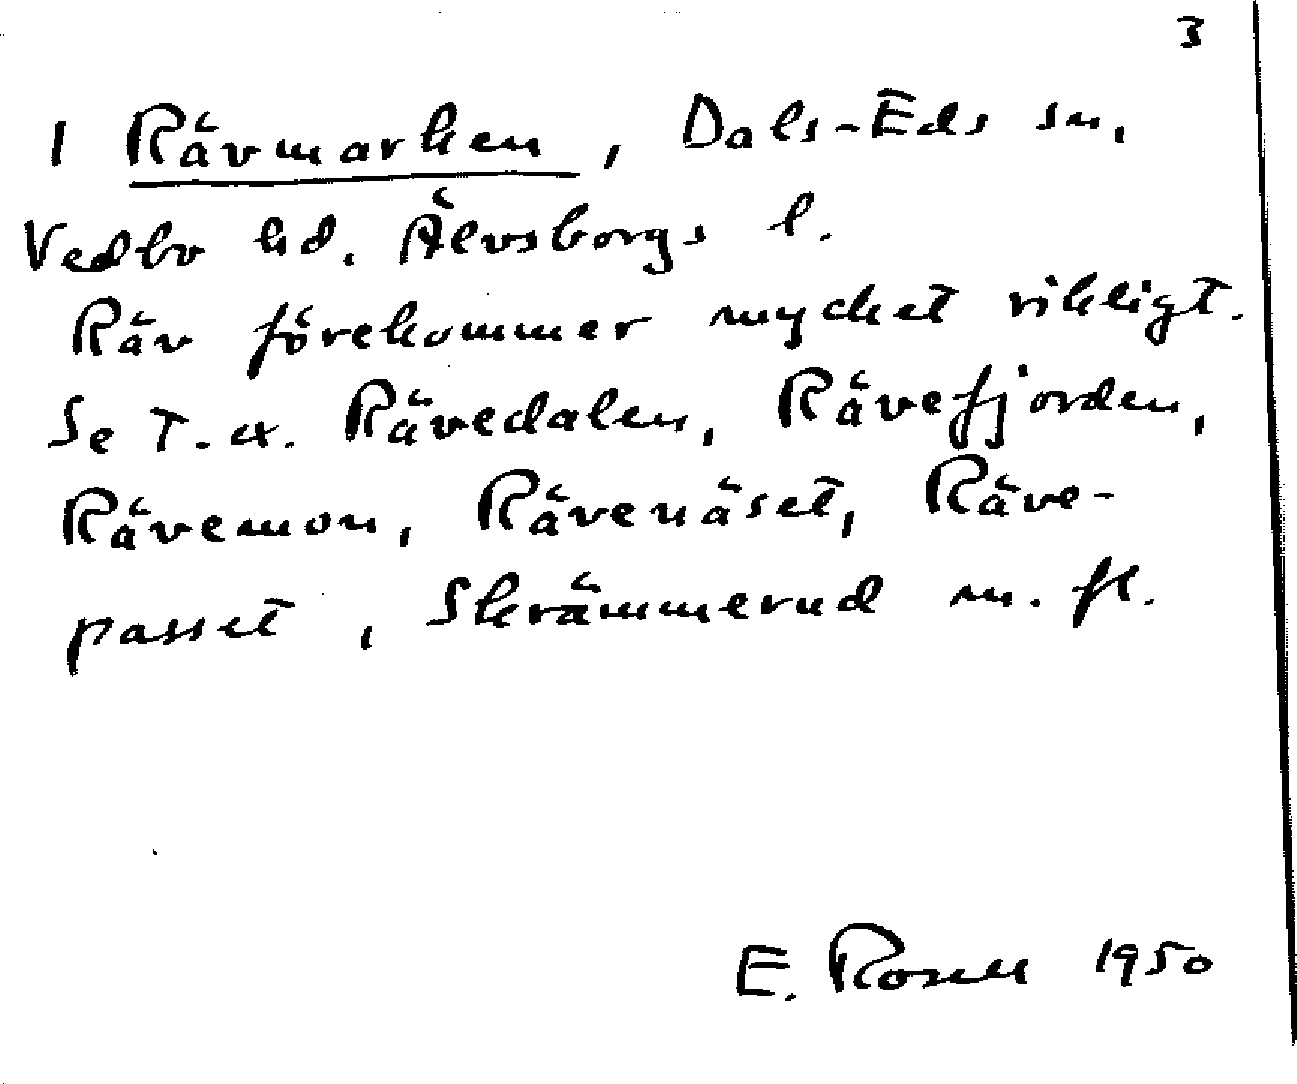 3
I Rävmarken, Dals-Eds sn,
Vedbo hd. Älvsborgs l.
Räv förekommer mycket rikligt.
Se t.ex. Rävedalen, Rävefjorden,
Rävemon, Rävenäset, Räve-
passet, Skrämmerud m. fl.
E. Rosell 1950